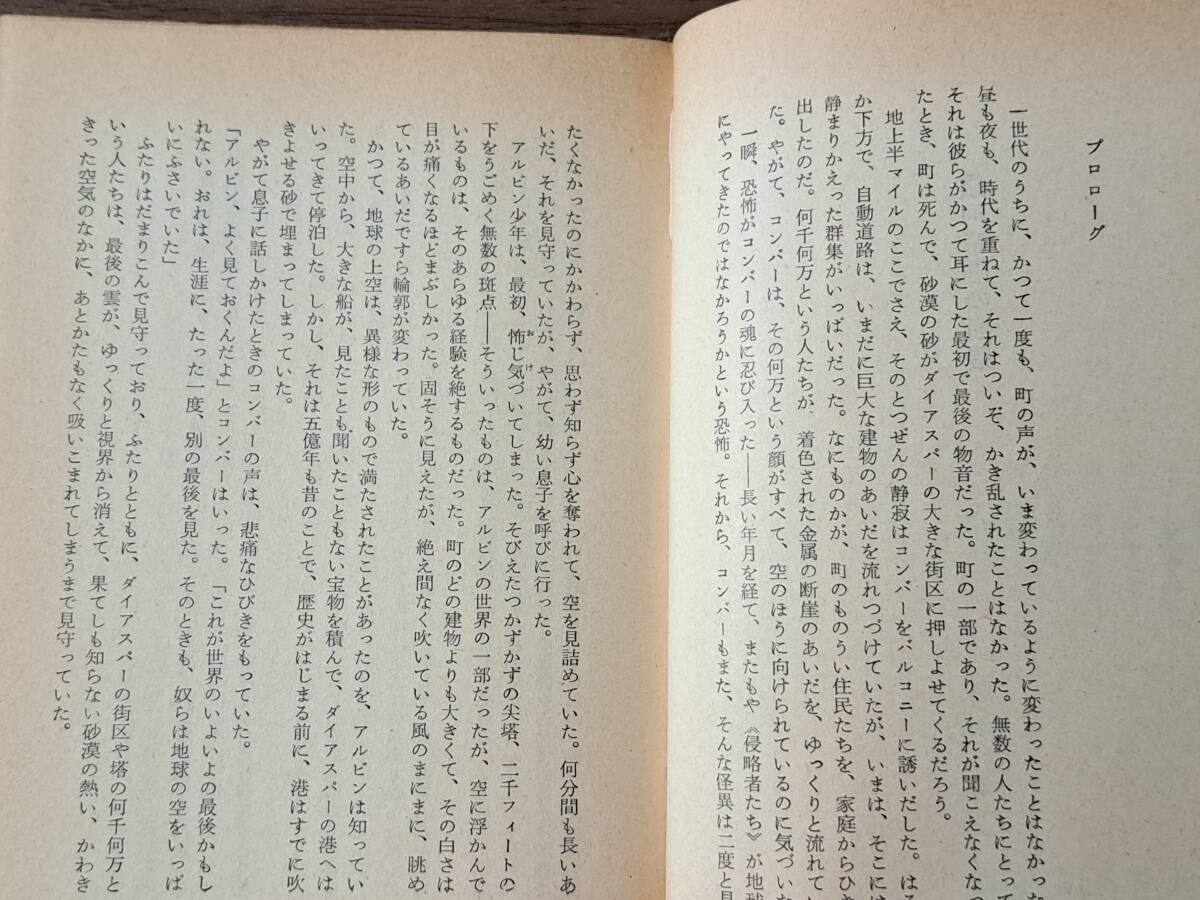 プロローグ
一世代のうちに、かつて一度も、町の声が、いま変わっているように変わったことはなかった
昼も夜も、時代を重ねて、それはついぞ、かき乱されたことはなかった。無数の人たちにとって
それは彼らがかつて耳にした最初で最後の物音だった。町の一部であり、それが聞こえなくなっ
たとき、町は死んで、砂漠の砂がダイアスパーの大きな街区に押しよせてくるだろう。
地上半マイルのここでさえ、そのとつぜんの静寂はコンバーをバルコニーに誘いだした。はる
か下方で、自動道路は、いまだに巨大な建物のあいだを流れつづけていたが、いまは、そこには
静まりかえった群集がいっぱいだった。なにものかが、町のものうい住民たちを、家庭からひき
出したのだ。何千何万という人たちが、着色された金属の断崖のあいだを、ゆっくりと流れてい
た。やがて、コンバーは、その何万という顔がすべて、空のほうに向けられているのに気づいた
一瞬、恐怖がコンバーの魂に忍び入った――長い年月を経て、またもや《侵略者たち》が地球
にやってきたのではなかろうかという恐怖。それから、コンバーもまた、そんな怪異は二度と見
たくなかったのにかかわらず、思わず知らず心を奪われて、空を見詰めていた。何分間も長いあ
いだ、それを見守っていたが、やがて、幼い息子を呼びに行った。
アルビン少年は、最初、怖じ気づいてしまった。そびえたつかずかずの尖塔、二千フィートの
下をうごめく無数の斑点――そういったものは、アルビンの世界の一部だったが、空に浮かんで
いるものは、そのあらゆる経験を絶するものだった。町のどの建物よりも大きくて、その白さは
目が痛くなるほどまぶしかった。固そうに見えたが、絶え間なく吹いている風のまにまに、眺め
ているあいだですら輪郭が変わっていた。
かつて、地球の上空は、異様な形のもので満たされたことがあったのを、アルビンは知ってい
た。空中から、大きな船が、見たことも聞いたこともない宝物を積んで、ダイアスパーの港へは
いってきて停泊した。しかし、それは五億年も昔のことで、歴史がはじまる前に、港はすでに吹
きよせる砂で埋まってしまっていた。
やがて息子に話しかけたときのコンバーの声は、悲痛なひびきをもっていた。
「アルビン、よく見ておくんだよ」とコンバーはいった。「これが世界のいよいよの最後かもし
れない。おれは、生涯に、たった一度、別の最後を見た。そのときも、奴らは地球の空をいっぱ
いにふさいでいた」
ふたりはだまりこんで見守っており、ふたりとともに、ダイアスパーの街区や塔の何千何万と
いう人たちは、最後の雲が、ゆっくりと視界から消えて、果てしも知らない砂漠の熱い、かわき
きった空気のなかに、あとかたもなく吸いこまれてしまうまで見守っていた。